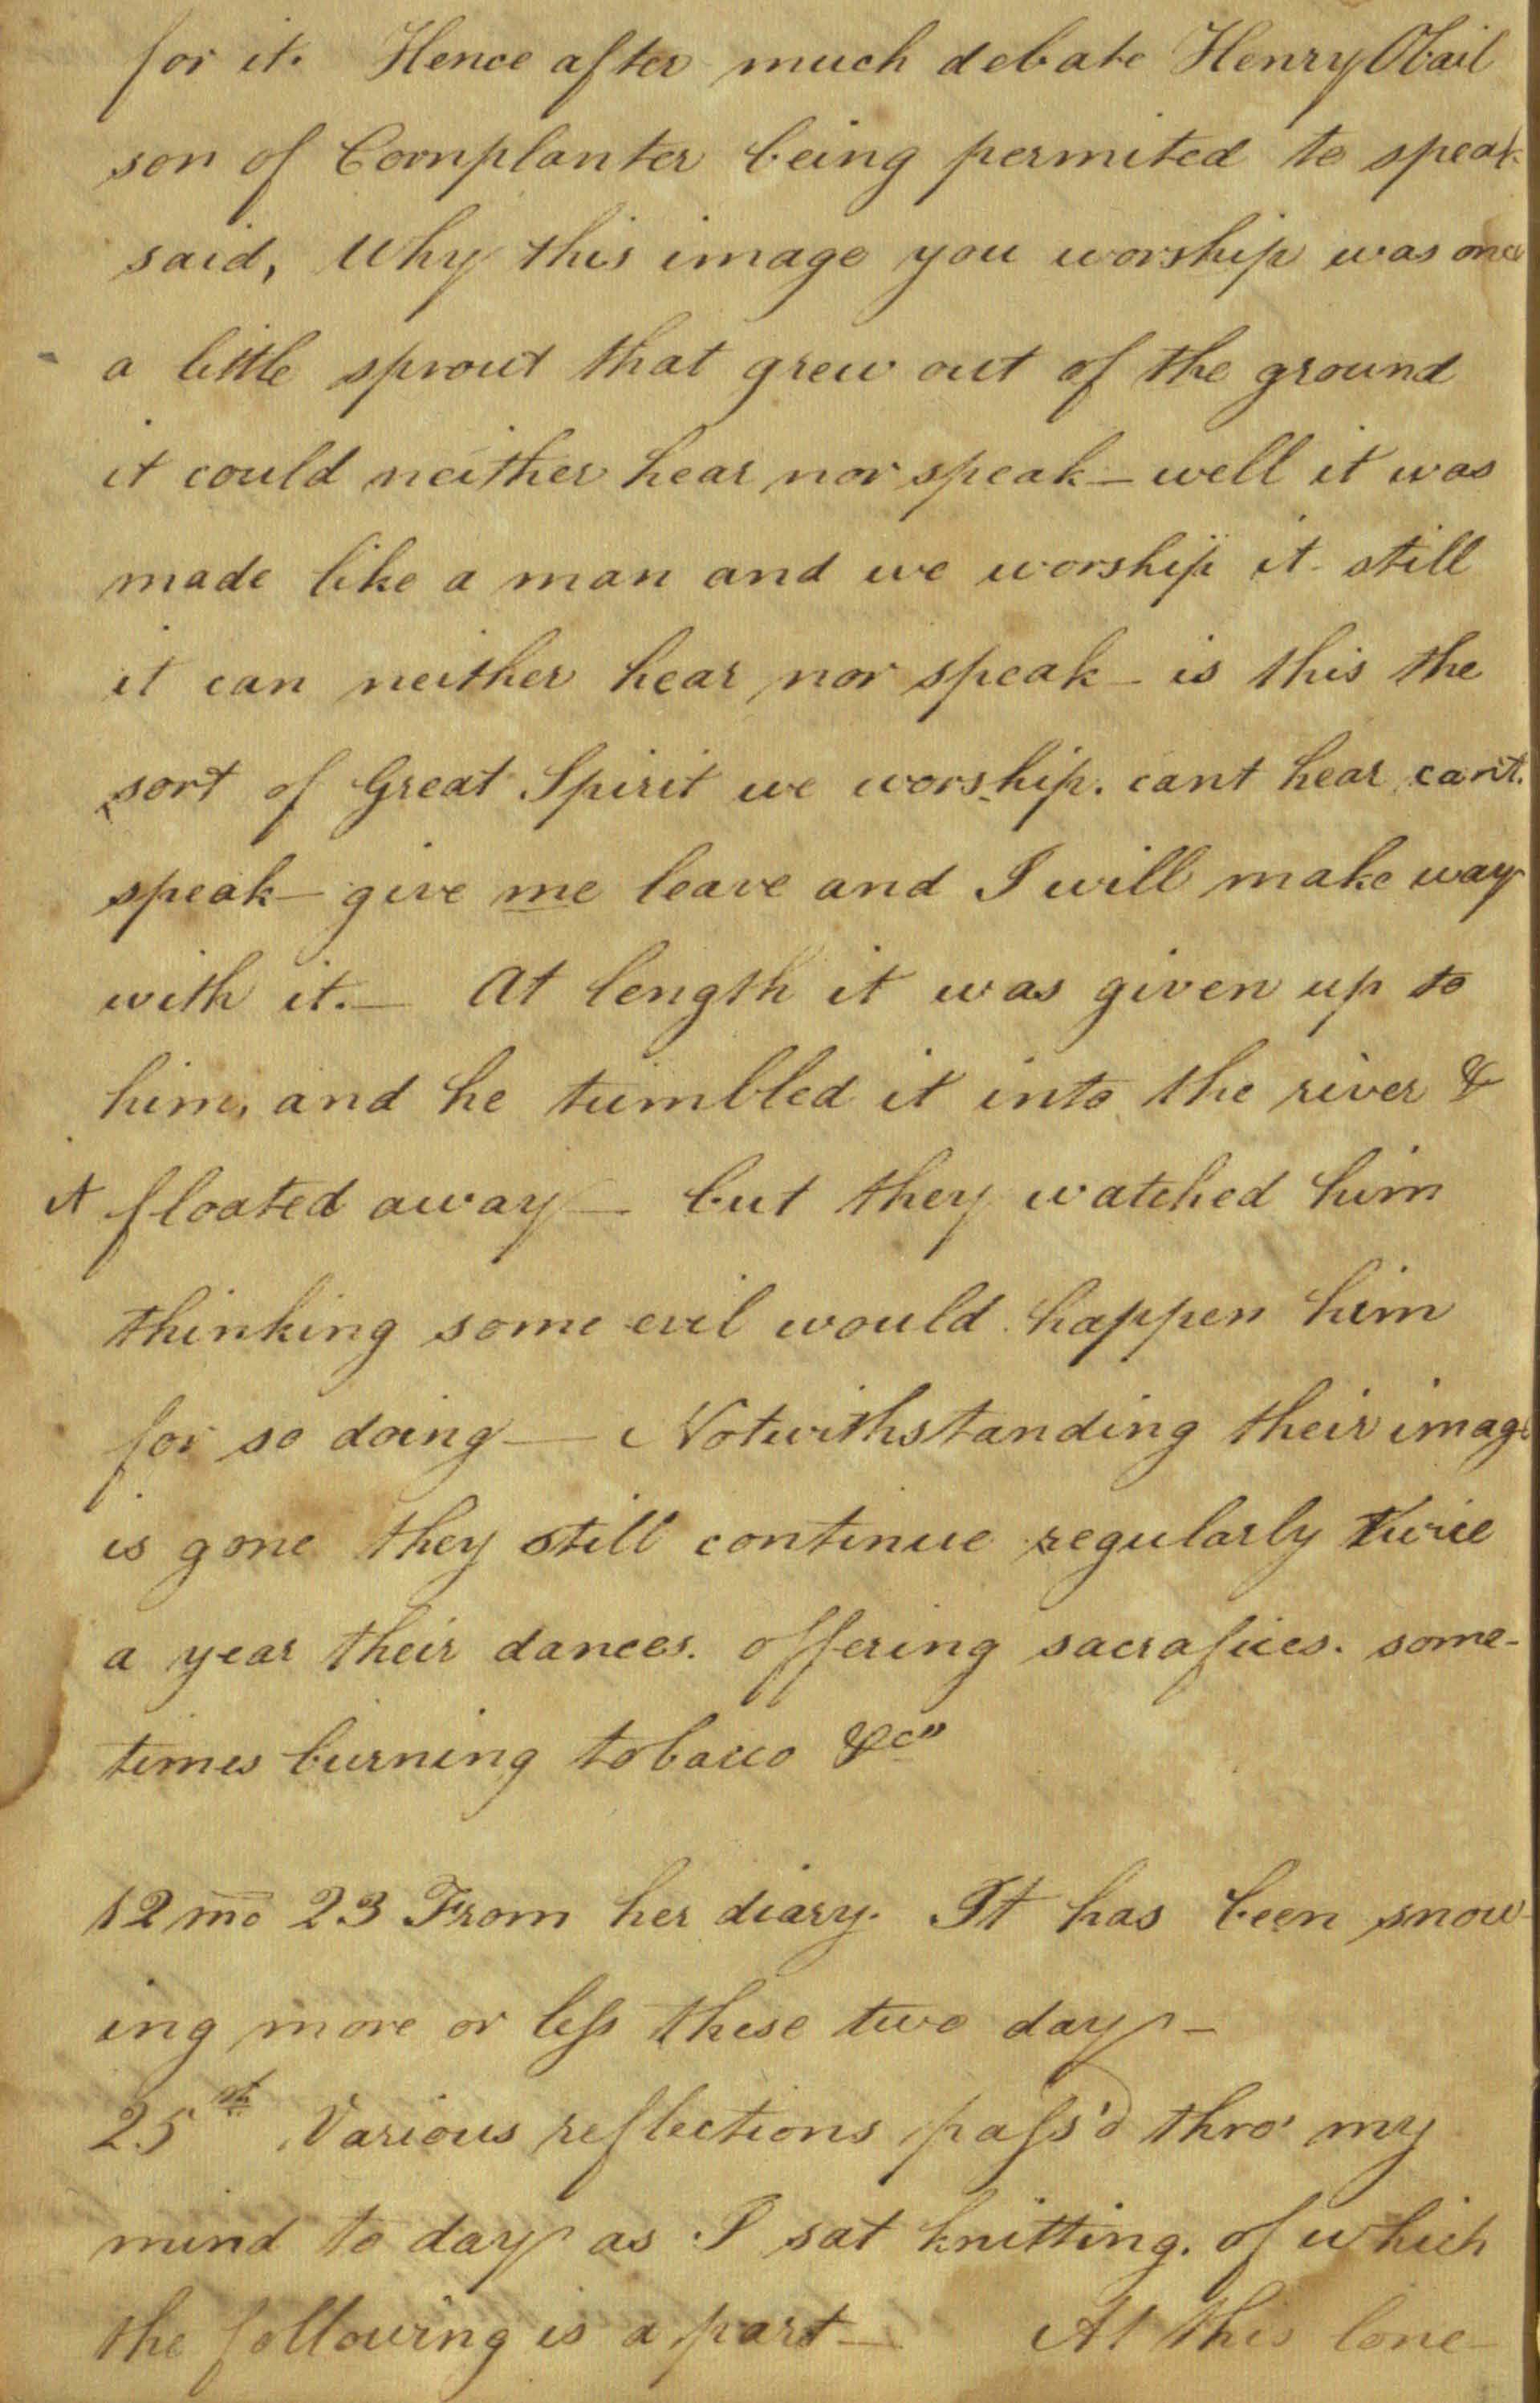 for it. Hence after much debate Henry Obail
son of Cornplanter being permited to speak
said, Why this image you worship was once
a little sprout that grew out of the ground
it could neither hear nor speak – well it was
made like a man and we worship it - still
it can neither hear nor speak – is this the
sort of Great Spirit we worship. cant hear cant
speak – give me leave and I will make way
with it. – At length it was given up to
him, and he tumbled it into the river &
it floated away – but they watched him
thinking some evil would happen him
for so doing — Notwithstanding their image
is gone they still continue regularly twice
a year their dances. offering sacrafices. some-
times burning tobacco &c"
12 mo 23 From her diary. It has been snow-
ing more or less these two days –
25th Various reflections pass'd thro' my
mind to day as I sat knitting. of which
the following is a part — At this lone-